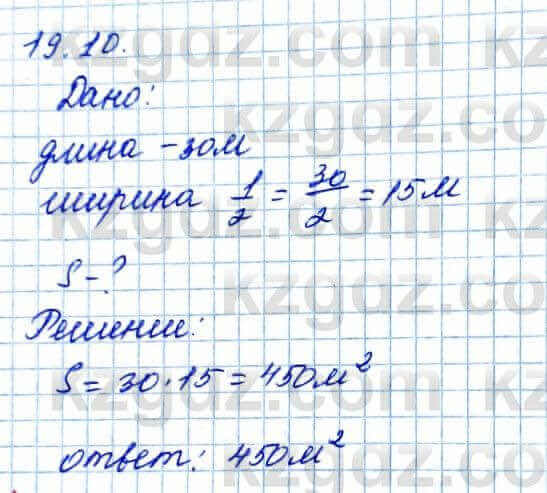 19.10.
Дано:
длина - 30м
ширина 1/2 = 30/2 = 15м
S - ?
Решение:
S = 30 · 15 = 450м²
ответ: 450м²
kzgdz.com